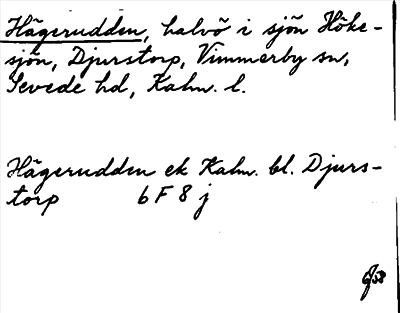 Hägerudden, halvö i sjön Höke-
sjön, Djurstorp, Vimmerby sn,
Sevede hd, Kalm. l.
Hägerudden ek Kalm. bl. Djurs-
torp 6 F 8 j